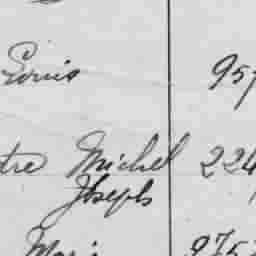 Louis 957
tre Michel 224
Joseph
Mari 9757